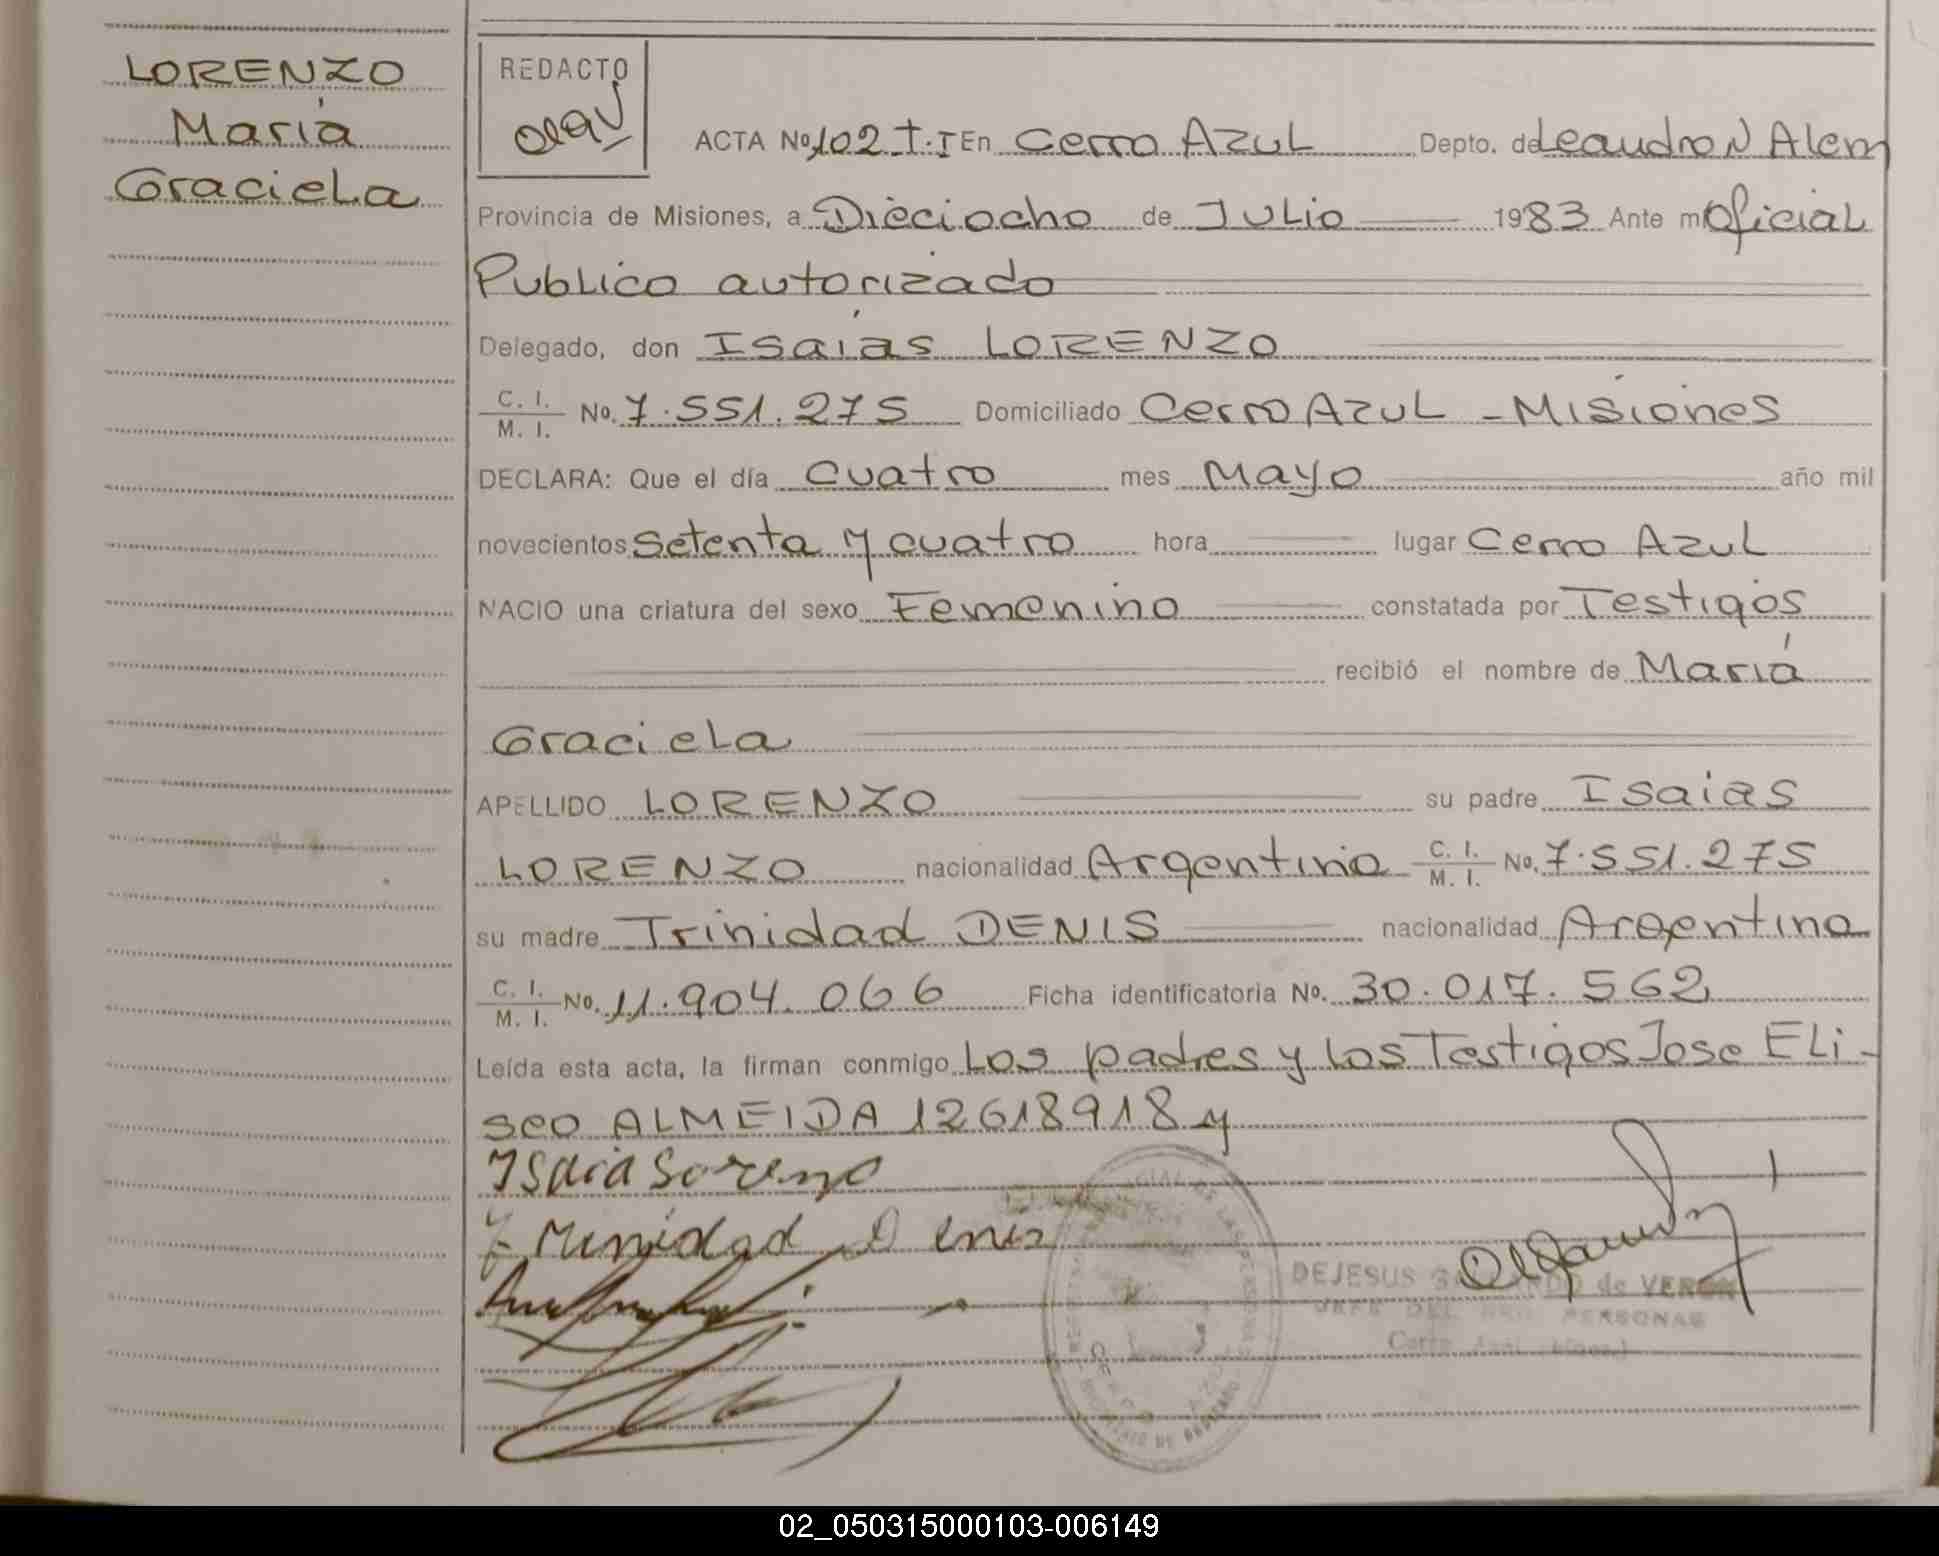 LORENZO
María
Graciela
REDACTO
ACTA No 102 T.I En Cerro Azul Depto. de Leandro N Alem
Provincia de Misiones, a Dieciocho de Julio 1983 Ante mi Oficial
Publico autorizado
Delegado, don Isaías LORENZO
C. I. / M. I. No. 7.551.275 Domiciliado Cerro Azul - Misiones
DECLARA: Que el día cuatro mes Mayo año mil
novecientos Setenta y cuatro hora lugar Cerro Azul
NACIO una criatura del sexo Femenino constatada por Testigos
recibió el nombre de María
Graciela
APELLIDO LORENZO su padre Isaias
LORENZO nacionalidad Argentina C. I. / M. I. No. 7.551.275
su madre Trinidad DENIS nacionalidad Argentina
C. I. / M. I. No. 11.904.066 Ficha identificatoria No. 30.017.562
Leída esta acta, la firman conmigo Los padres y los Testigos Jose Eli-
seo ALMEIDA 12618918 y
Isaias Lorenzo
Trinidad Denis
DEJESUS de VERON
JEFE DEL REG. PERSONAS
Cerro Azul
02_050315000103-006149